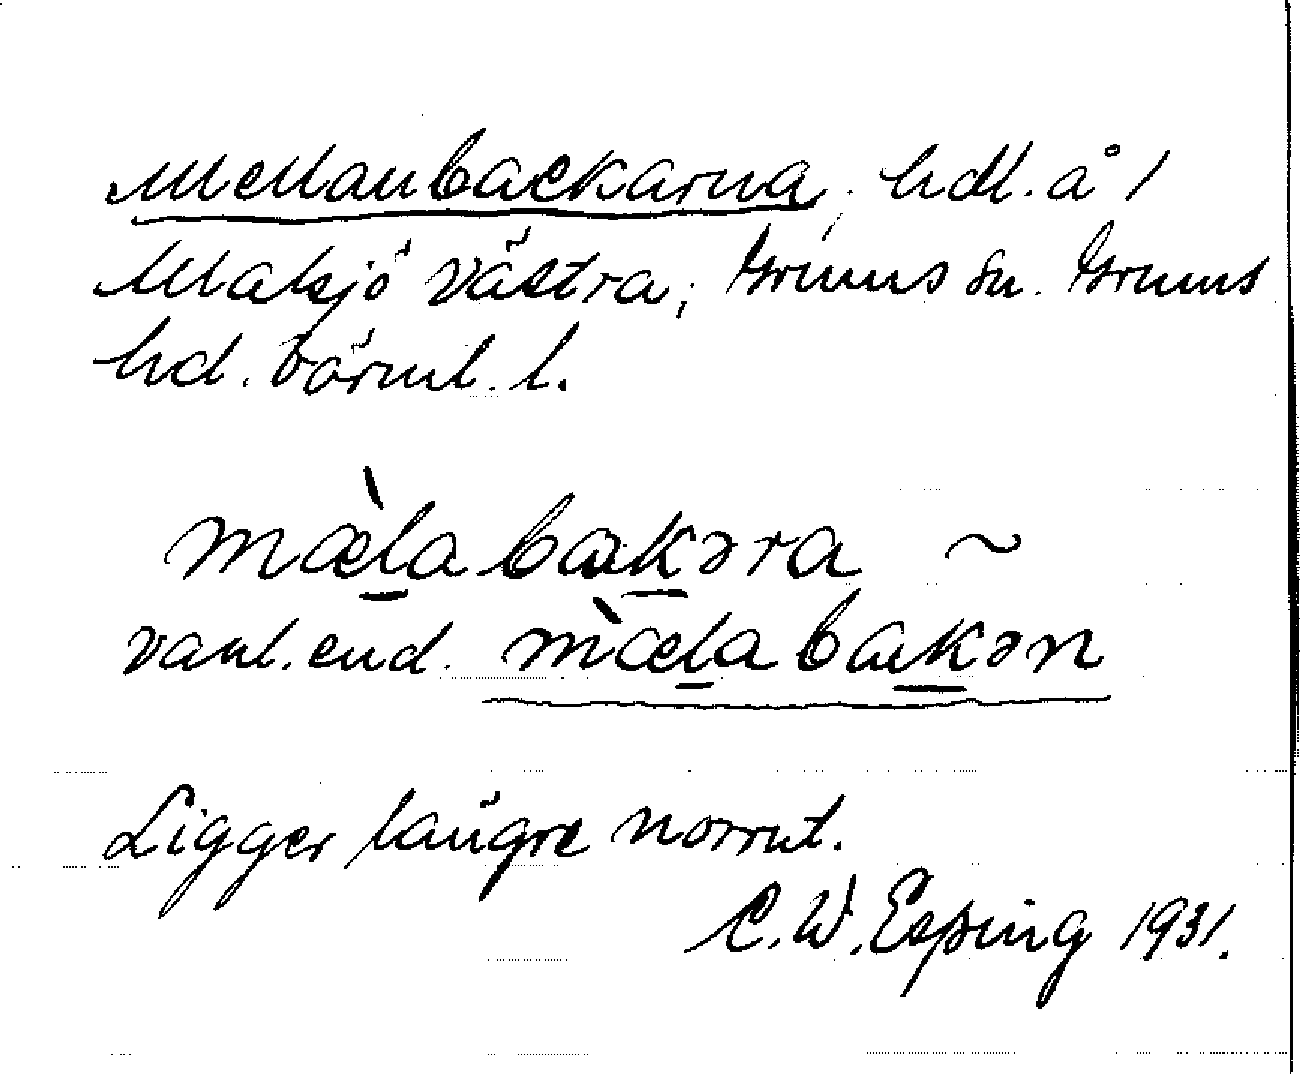 Mellanbackarna, hdl. å 1
Maksjö västra, Grums sn. Grums
hd. Värml. l.
mæ̀la bakəra ~
vanl. end. mæ̀la bakən
Ligger längre norrut.
C. W. Esping 1931.